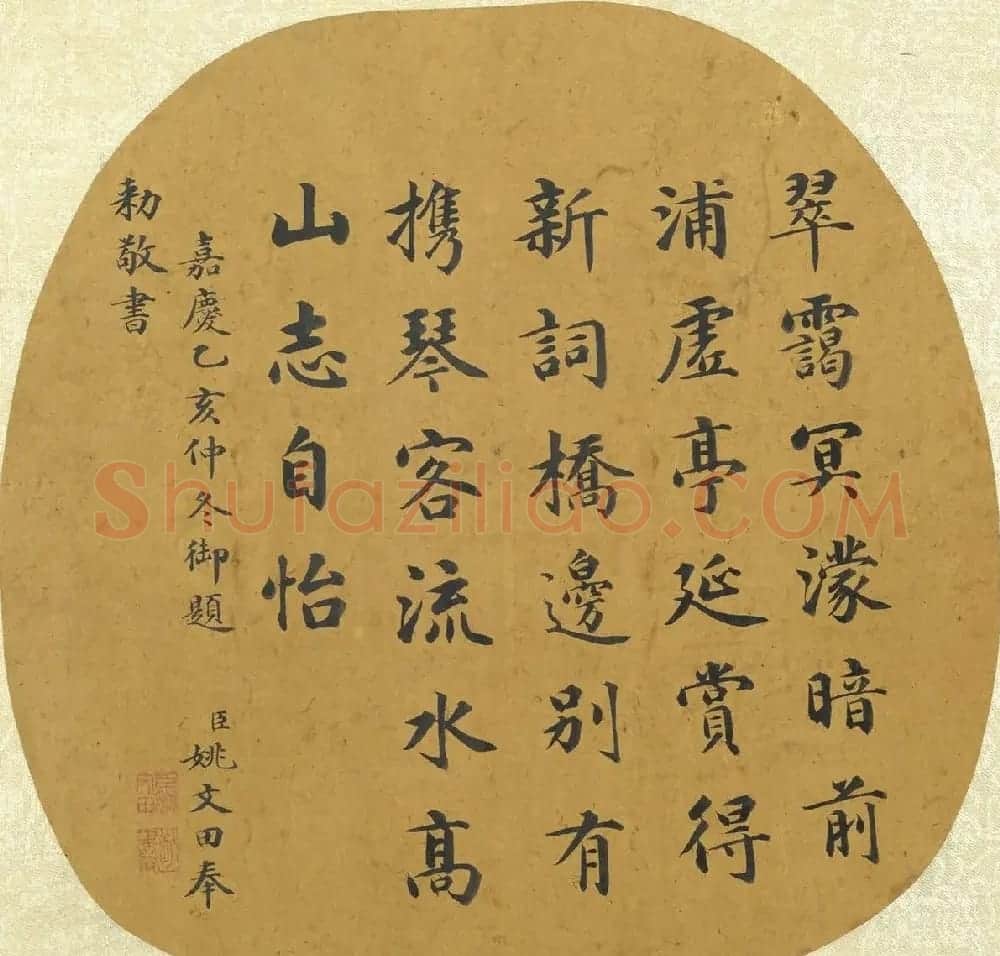 翠靄冥濛暗前
浦虛亭延賞得
新詞橋邊別有
携琴客流水髙
山志自怡
嘉慶乙亥仲冬御題
臣姚文田奉
勅敬書
Shufaziliao.COM